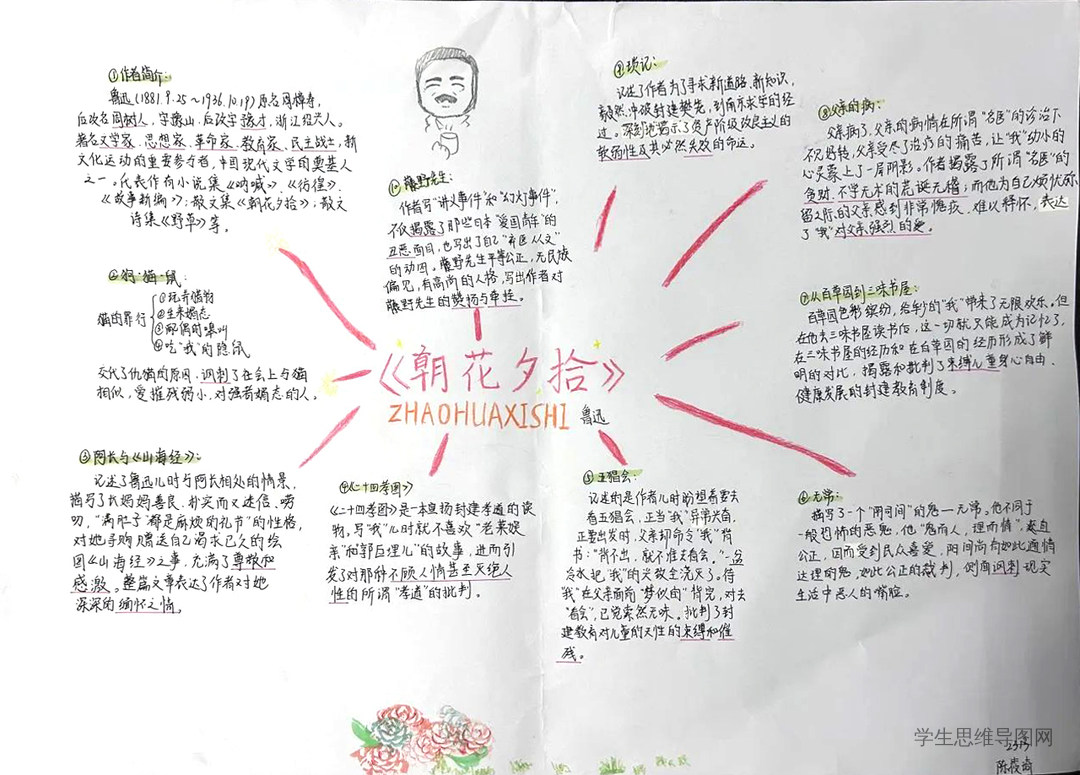 ①作者简介:
鲁迅(1881.9.25～1936.10.19)原名周樟寿,
后改名周树人,字豫山,后改字豫才,浙江绍兴人。
著名文学家、思想家、革命家、教育家、民主战士,新
文化运动的重要参与者,中国现代文学的奠基人
之一。代表作有小说集《呐喊》、《彷徨》、
《故事新编》;散文集《朝花夕拾》;散文
诗集《野草》等。
②狗·猫·鼠:
猫的罪行
①玩弄猎物
②生来媚态
③配偶的嗥叫
④吃“我”的隐鼠
交代了仇猫的原因,讽刺了社会上与猫
相似,爱摧残弱小,对强者媚态的人。
③阿长与《山海经》:
记述了鲁迅儿时与阿长相处的情景,
描写了长妈妈善良、朴实而又迷信、唠
叨,“满肚子都是麻烦的礼节”的性格,
对她寻购赠送自己渴求已久的绘
图《山海经》之事,充满了尊敬和
感激。整篇文章表达了作者对她
深深的缅怀之情。
④《二十四孝图》
《二十四孝图》是一本宣扬封建孝道的读
物,写“我”儿时就不喜欢“老莱娱
亲”和郭巨埋儿”的故事,进而引
发了对那种不顾人情甚至灭绝人
性的所谓“孝道”的批判。
⑤五猖会:
记述的是作者儿时盼望着要去
看五猖会,正当“我”异常兴奋,
正要出发时,父亲却命令“我”背
书:“背不出,就不准去看会。”一盆
冷水把“我”的兴致全浇灭了。待
我”在父亲面前“梦似的”背完,对去
“看会”,已觉索然无味。批判了封
建教育对儿童的天性的束缚和摧
残。
⑥无常:
描写了一个“阴司间”的鬼—无常。他不同于
一般的恶鬼,他“鬼而人,理而情”,
公正,因而受到民众喜爱,阴间尚有如此通情
达理的鬼,如此公正的裁判,侧面讽刺现实
生活中恶人的嘴脸。
⑦从百草园到三味书屋:
百草园色彩缤纷,给年少的“我”带来了无限欢乐。但
在他去三味书屋读书后,这一切就只能成为记忆了,
在三味书屋的经历和在百草园的经历形成了鲜
明的对比,揭露和批判了束缚儿童身心自由、
健康发展的封建教育制度。
⑧父亲的病:
父亲病了,父亲的病情在所谓“名医”的诊治下
不见好转,父亲受尽了治疗的痛苦,让“我”幼小的
心灵蒙上了一层阴影。作者揭露了所谓“名医”的
贪财、不学无术的荒诞无稽;而他为自己烦忧弥
留之际的父亲感到非常愧疚、难以释怀,表达
了“我”对父亲强烈的爱。
⑨琐记:
记述了作者为了寻求新道路、新知识,
毅然冲破封建樊笼,到南京求学的经
过。深刻地揭示了资产阶级改良主义的
软弱性及其必然失败的命运。
⑩藤野先生:
作者写“讲义事件”和“幻灯事件”,
不仅揭露了那些日本“爱国青年”的
丑恶面目,也写出了自己“弃医从文”
的动因。藤野先生平等公正,无民族
偏见,有高尚的人格,写出作者对
藤野先生的赞扬与牵挂。
《朝花夕拾》
ZHAOHUAXISHI 鲁迅
学生思维导图网